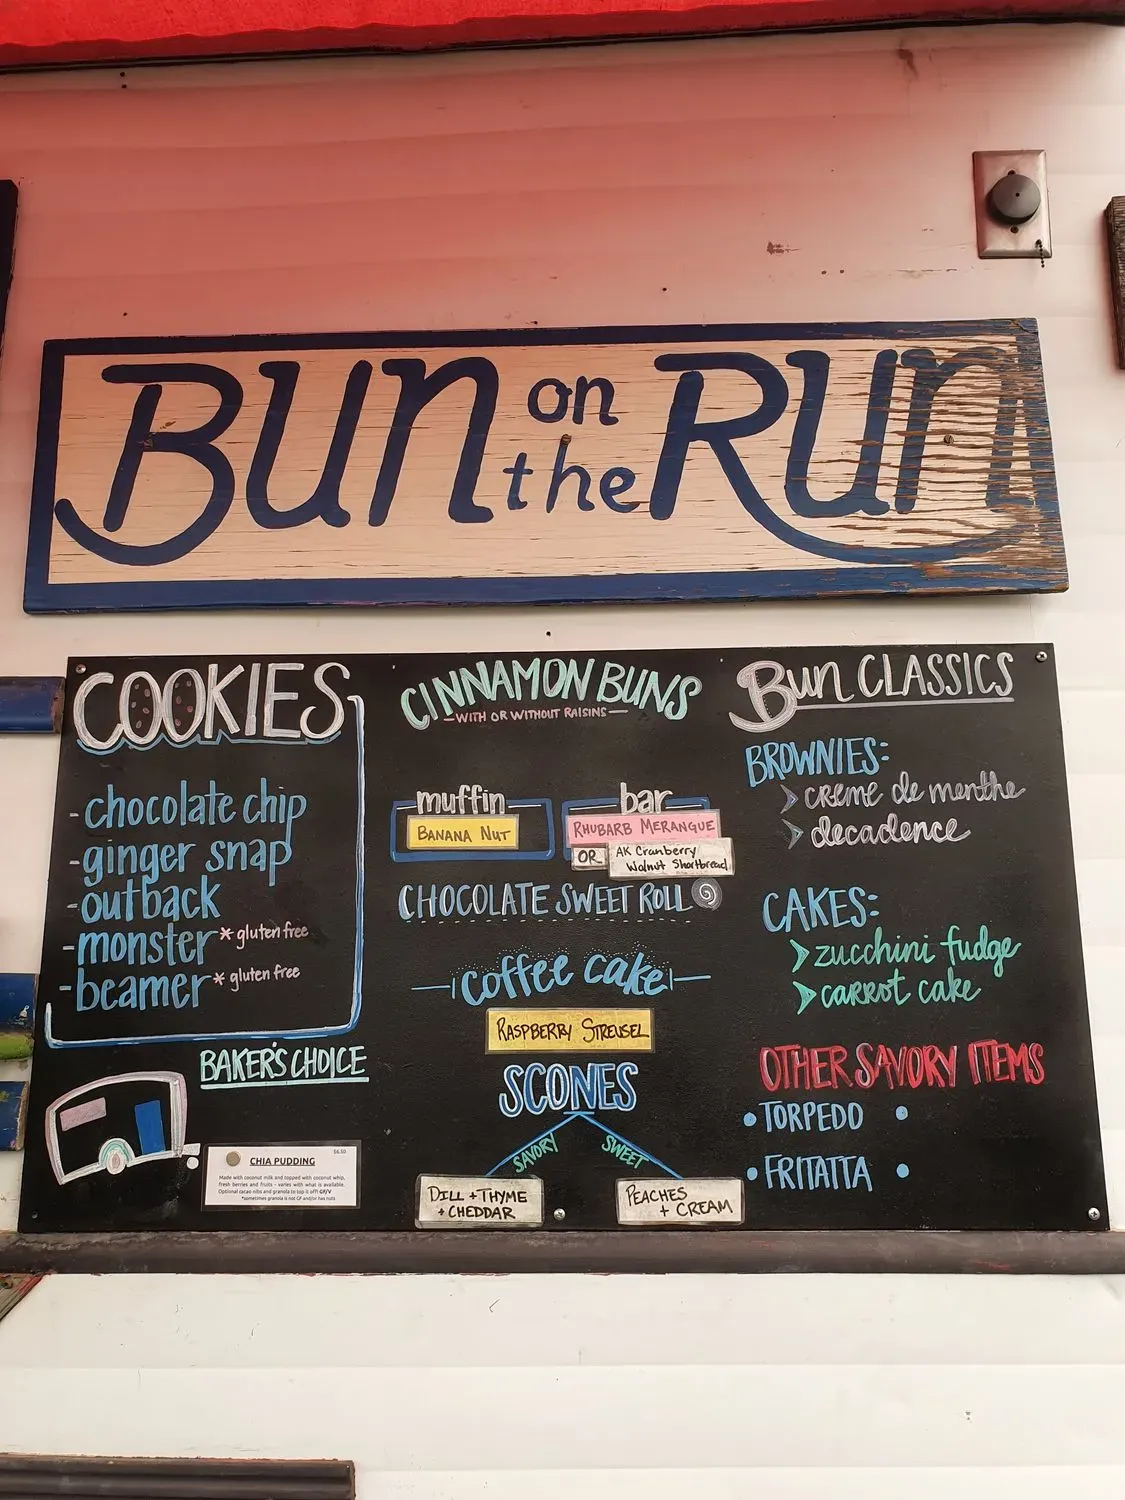 BUN on the RUN
COOKIES
- chocolate chip
- ginger snap
- outback
- monster * gluten free
- beamer * gluten free
BAKER'S CHOICE
CHIA PUDDING
$6.50
Made with coconut milk and topped with coconut whip,
fresh berries and fruits - varies with what is available.
Optional cacao nibs and granola to top it off! GF/V
*sometimes granola is not GF and/or has nuts
CINNAMON BUNS
- WITH OR WITHOUT RAISINS -
muffin
BANANA NUT
bar
RHUBARB MERANGUE
OR
AK Cranberry
Walnut Shortbread
CHOCOLATE SWEET ROLL
coffee cake
RASPBERRY STREUSEL
SCONES
SAVORY
SWEET
DILL + THYME
+ CHEDDAR
PEACHES
+ CREAM
Bun CLASSICS
BROWNIES:
creme de menthe
decadence
CAKES:
zucchini fudge
carrot cake
OTHER SAVORY ITEMS
• TORPEDO •
• FRITATTA •